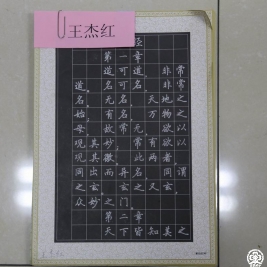 王杰红
经
第一章
道可道,非常
道。名可名,非常
名。无名,天地之
始;有名,万物之
母。故常无,欲以
观其妙;常有,欲以
观其徼。此两者
同出而异名,同谓
之玄。玄之又玄,
众妙之门。
第二章
天下皆知美之